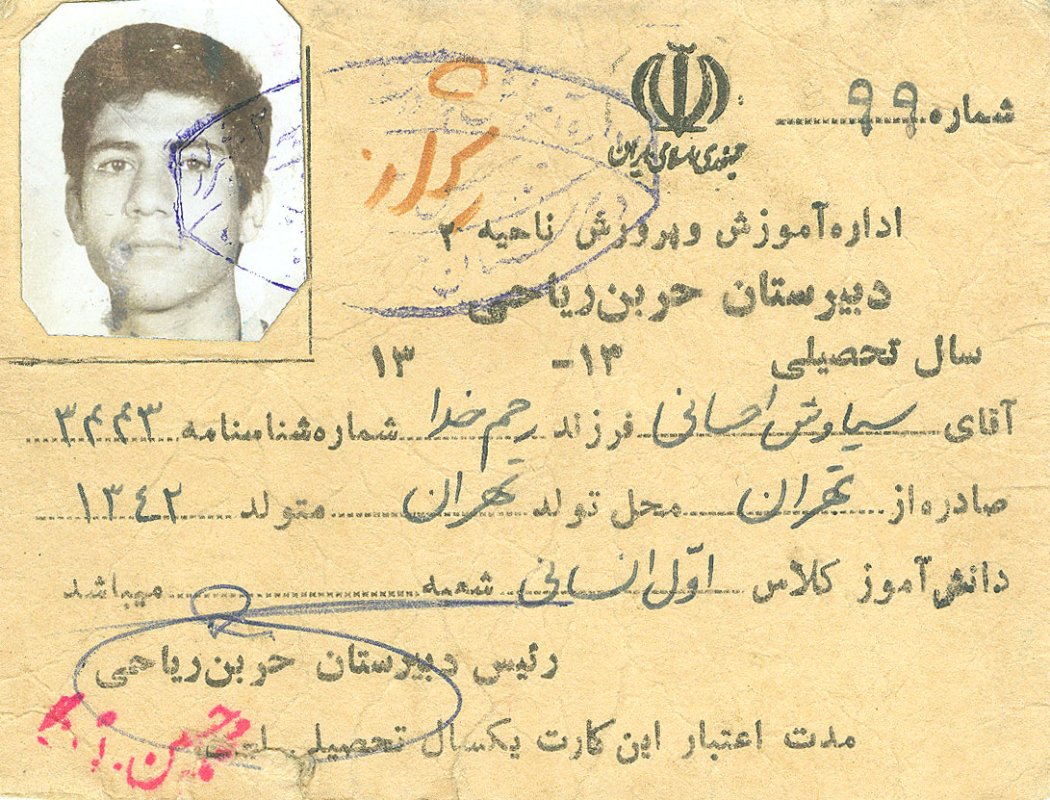 شماره ۹۹
جمهوری اسلامی ایران
اداره آموزش وپرورش ناحیه ۲
دبیرستان حربن‌ریاحی
سال تحصیلی ۱۳ -۱۳
آقای سیاوش احسانی فرزند رحم خدا شماره شناسنامه ۳۴۴۳
صادره از تهران محل تولد تهران متولد ۱۳۴۲
دانش‌آموز کلاس اوّل انسانی شعبه میباشد
رئیس دبیرستان حربن‌ریاحی
مدت اعتبار این کارت یکسال تحصیلی